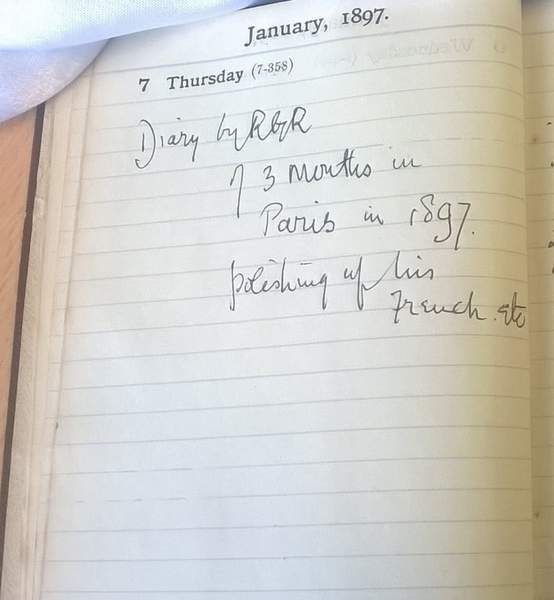 January, 1897.
7 Thursday (7-358)
Diary by
of 3 months in
Paris in 1897.
polishing up his
French. etc